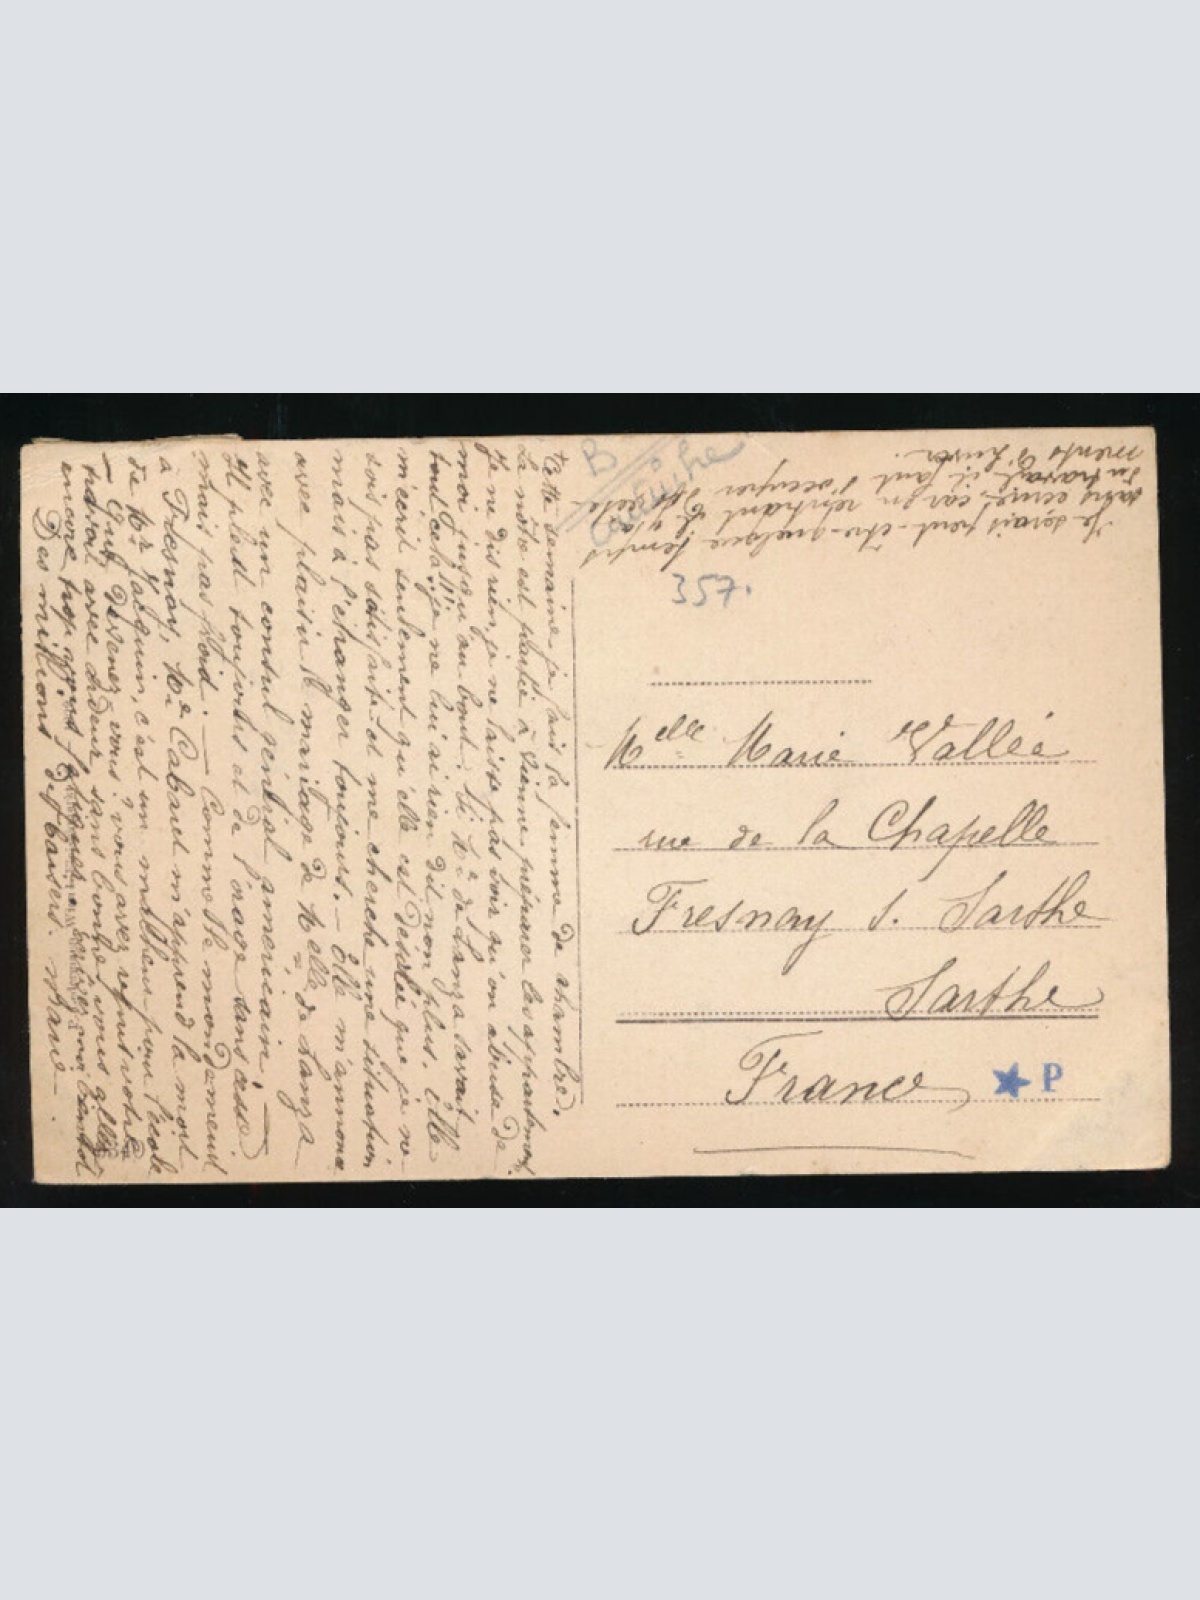 Cette semaine je fais la femme de chambre.
La nôtre est partie à Vienne préparer les appartements.
Je ne dis rien, je ne laisse pas voir qu'on abuse de
moi jusqu'au bout. Si Me de Lanza savait
tout cela, je ne lui ai rien dit non plus. Elle
m'écrit seulement qu'elle est désolée que je ne
sois pas satisfaite et me cherche une situation
mais à l'étranger toujours. — Elle m'annonce
avec plaisir le mariage de Melle de Lanza
avec un consul général américain. —
Il pleut toujours et de l'orage sans cesse
mais pas froid. — Comme le monde meurt
à Fresnay, Me Cabaret m'apprend la mort
de Mr Jacquin, c'est un malheur pour l'école
— Que devenez-vous? vous avez repris votre
travail avec ardeur sans doute, vous allez
encore trop
Des millions de baisers.
Je serais peut-être quelque temps
sans écrire, car en rentrant il y a
du travail, il faut s'occuper
d'hiver.
B
Autriche
357.
Melle Marie Vallée
rue de la Chapelle
Fresnay s. Sarthe
Sarthe
France
P